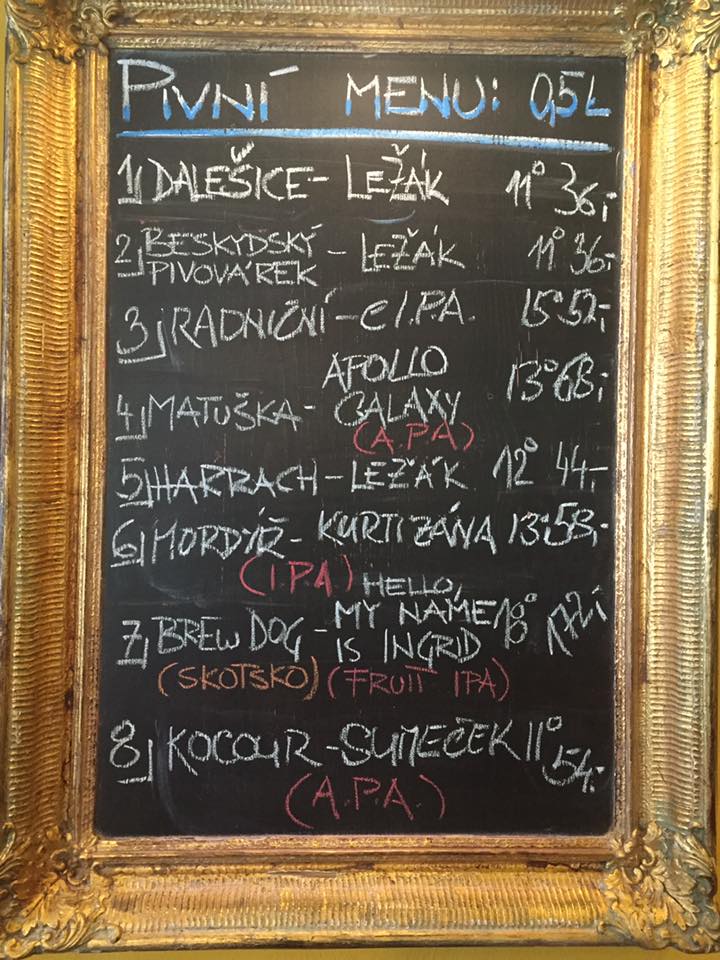 PIVNÍ MENU: 0,5L
1) DALEŠICE - LEŽÁK 11° 36,-
2) BESKYDSKÝ PIVOVÁREK - LEŽÁK 11° 36,-
3) RADNIČNÍ - I.P.A. 15° 52,-
4) MATUŠKA - APOLLO GALAXY 13° 68,-
(A.P.A)
5) HARRACH - LEŽÁK 12° 44,-
6) MORDÝŘ - KURTIZÁNA 13° 58,-
(I.P.A.)
7) BREWDOG - HELLO, MY NAME IS INGRID 18°
(SKOTSKO) (FRUIT IPA)
8) KOCOUR - SUMEČEK 11° 54,-
(A.P.A.)